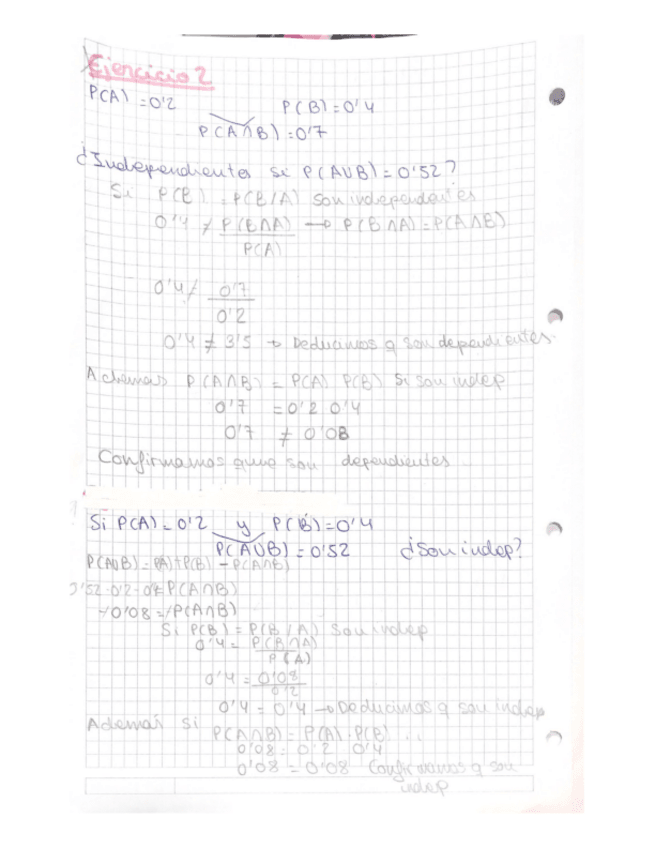 Ejercicio 2
P(A) = 0'2 P(B) = 0'4
P(A∩B) = 0'7
¿Independientes si P(A∪B) = 0'52?
Si P(B) = P(B/A) son independientes
0'4 ≠ P(B∩A) → P(B∩A) = P(A∩B)
P(A)
0'4 ≠ 0'7
0'2
0'4 ≠ 3'5 → Deducimos q son dependientes.
Ademas P(A∩B) = P(A) P(B) Si son indep
0'7 = 0'2 0'4
0'7 ≠ 0'08
Confirmamos quue son dependientes
Si P(A) = 0'2 y P(B) = 0'4
P(A∪B) = 0'52 ¿Son indep?
P(A∪B) = P(A) + P(B) - P(A∩B)
0'52-0'2-0'4=P(A∩B)
-0'08 = P(A∩B)
Si P(B) = P(B/A) Son indep
0'4 = P(B∩A)
P(A)
0'4 = 0'08
0'2
0'4 = 0'4 → Deducimos q son indep
Ademas si
P(A∩B) = P(A) · P(B) . .
0'08 = 0'2 0'4
0'08 = 0'08 Confirmamos q son
indep